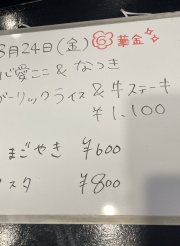 8月24日(金) 華金
心愛ここ & なつき
ガーリックライス & 牛ステーキ
¥1,100
まごやき ¥600
スタ ¥800